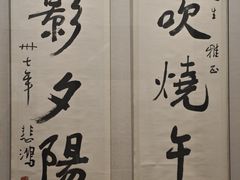 生雅正
吹燒午
影夕陽
卅七年
悲鴻